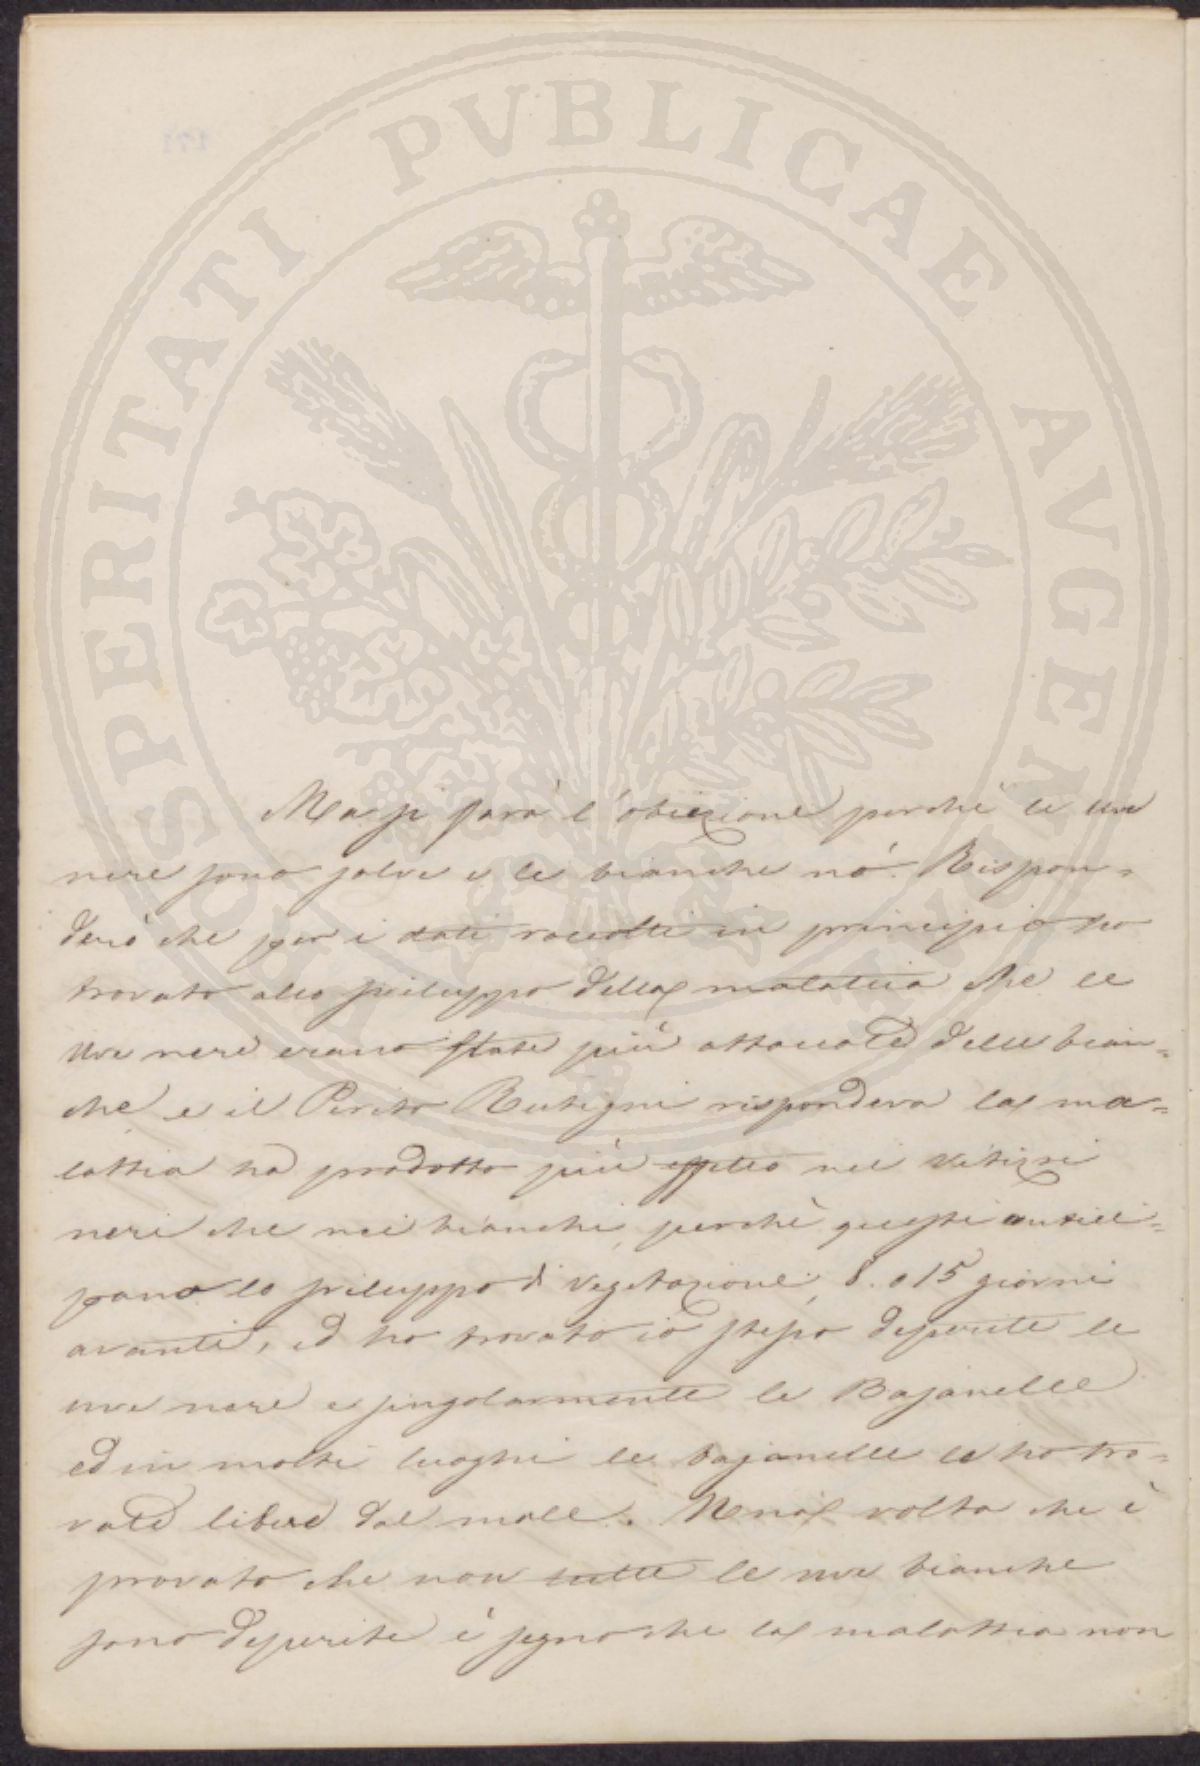 PROSPERITATI PUBLICAE AVGENDAE
171
Ma si farà l'obiezione perchè le uve
nere sono salve e le bianche nò. Rispon=
derò che per i dati raccolti in principio ho
trovato allo sviluppo della malattia che le
uve nere erano state più attaccate delle bian=
che e il Perito Rutigni rispondeva la ma=
lattia ha prodotto più effetto nei vitigni
neri che nei bianchi, perchè questi antici=
pano lo sviluppo di vegetazione, 8. o 15 giorni
avanti, ed ho trovato io stesso deperite le
uve nere e singolarmente le Bajanelle
ed in molti luoghi le bajanelle le ho tro=
vate libere dal male. Una volta che è
provato che non tutte le uve bianche
sono deperite è segno che la malattia non